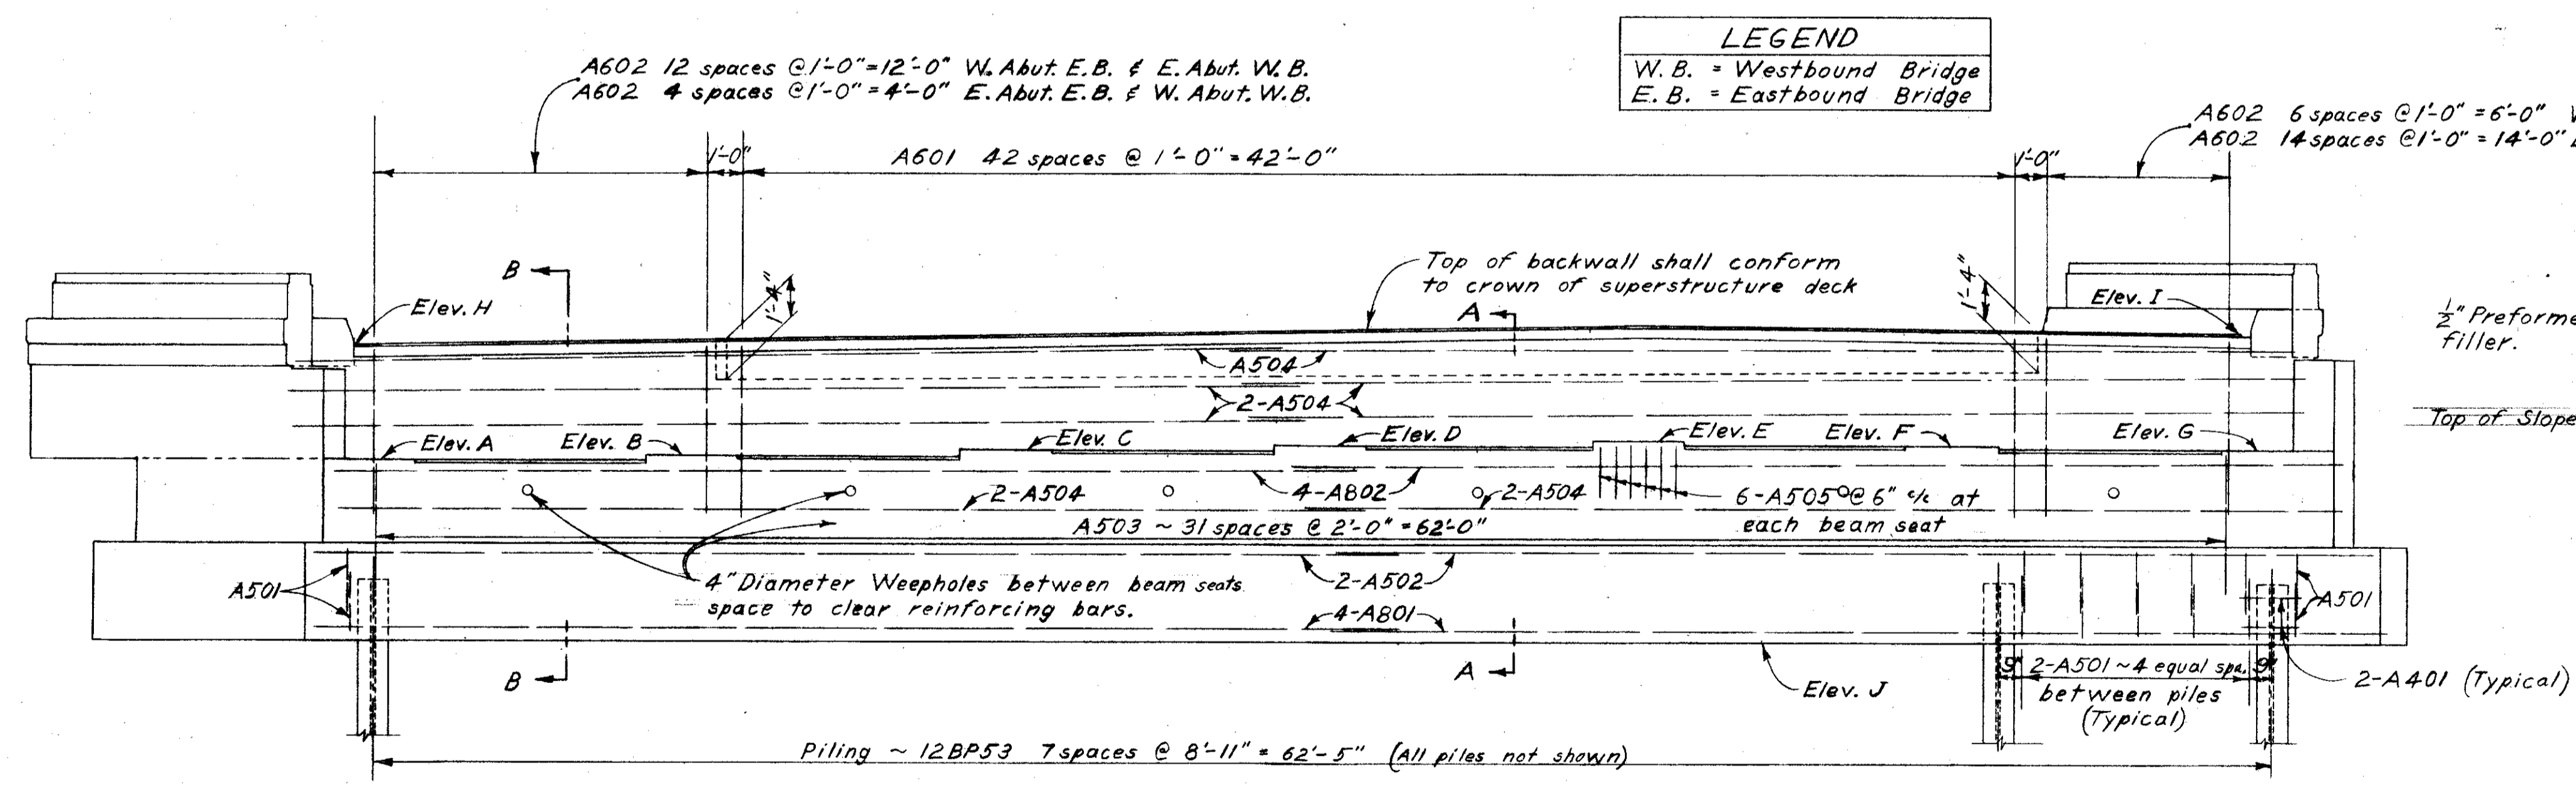 LEGEND
W.B. = Westbound Bridge
E.B. = Eastbound Bridge
A602 12 spaces @ 1'-0" = 12'-0" W. Abut. E.B. & E. Abut. W.B.
A602 4 spaces @ 1'-0" = 4'-0" E. Abut. E.B. & W. Abut. W.B.
A602 6 spaces @ 1'-0" = 6'-0"
A602 14 spaces @ 1'-0" = 14'-0"
1'-0"
A601 42 spaces @ 1'-0" = 42'-0"
1'-0"
B
Elev. H
1'-4"
Top of backwall shall conform
to crown of superstructure deck
A
1'-4"
Elev. I
1/2" Preforme
filler.
A504
2-A504
Top of Slope
Elev. A
Elev. B
Elev. C
Elev. D
Elev. E
Elev. F
Elev. G
2-A504
4-A802
2-A504
6-A505 @ 6" c/c at
each beam seat
A503 ~ 31 spaces @ 2'-0" = 62'-0"
A501
4" Diameter Weepholes between beam seats
space to clear reinforcing bars.
2-A502
4-A801
A501
B
A
Elev. J
9"
2-A501 ~ 4 equal spa.
9"
between piles
(Typical)
2-A401 (Typical)
Piling ~ 12BP53 7 spaces @ 8'-11" = 62'-5" (All piles not shown)